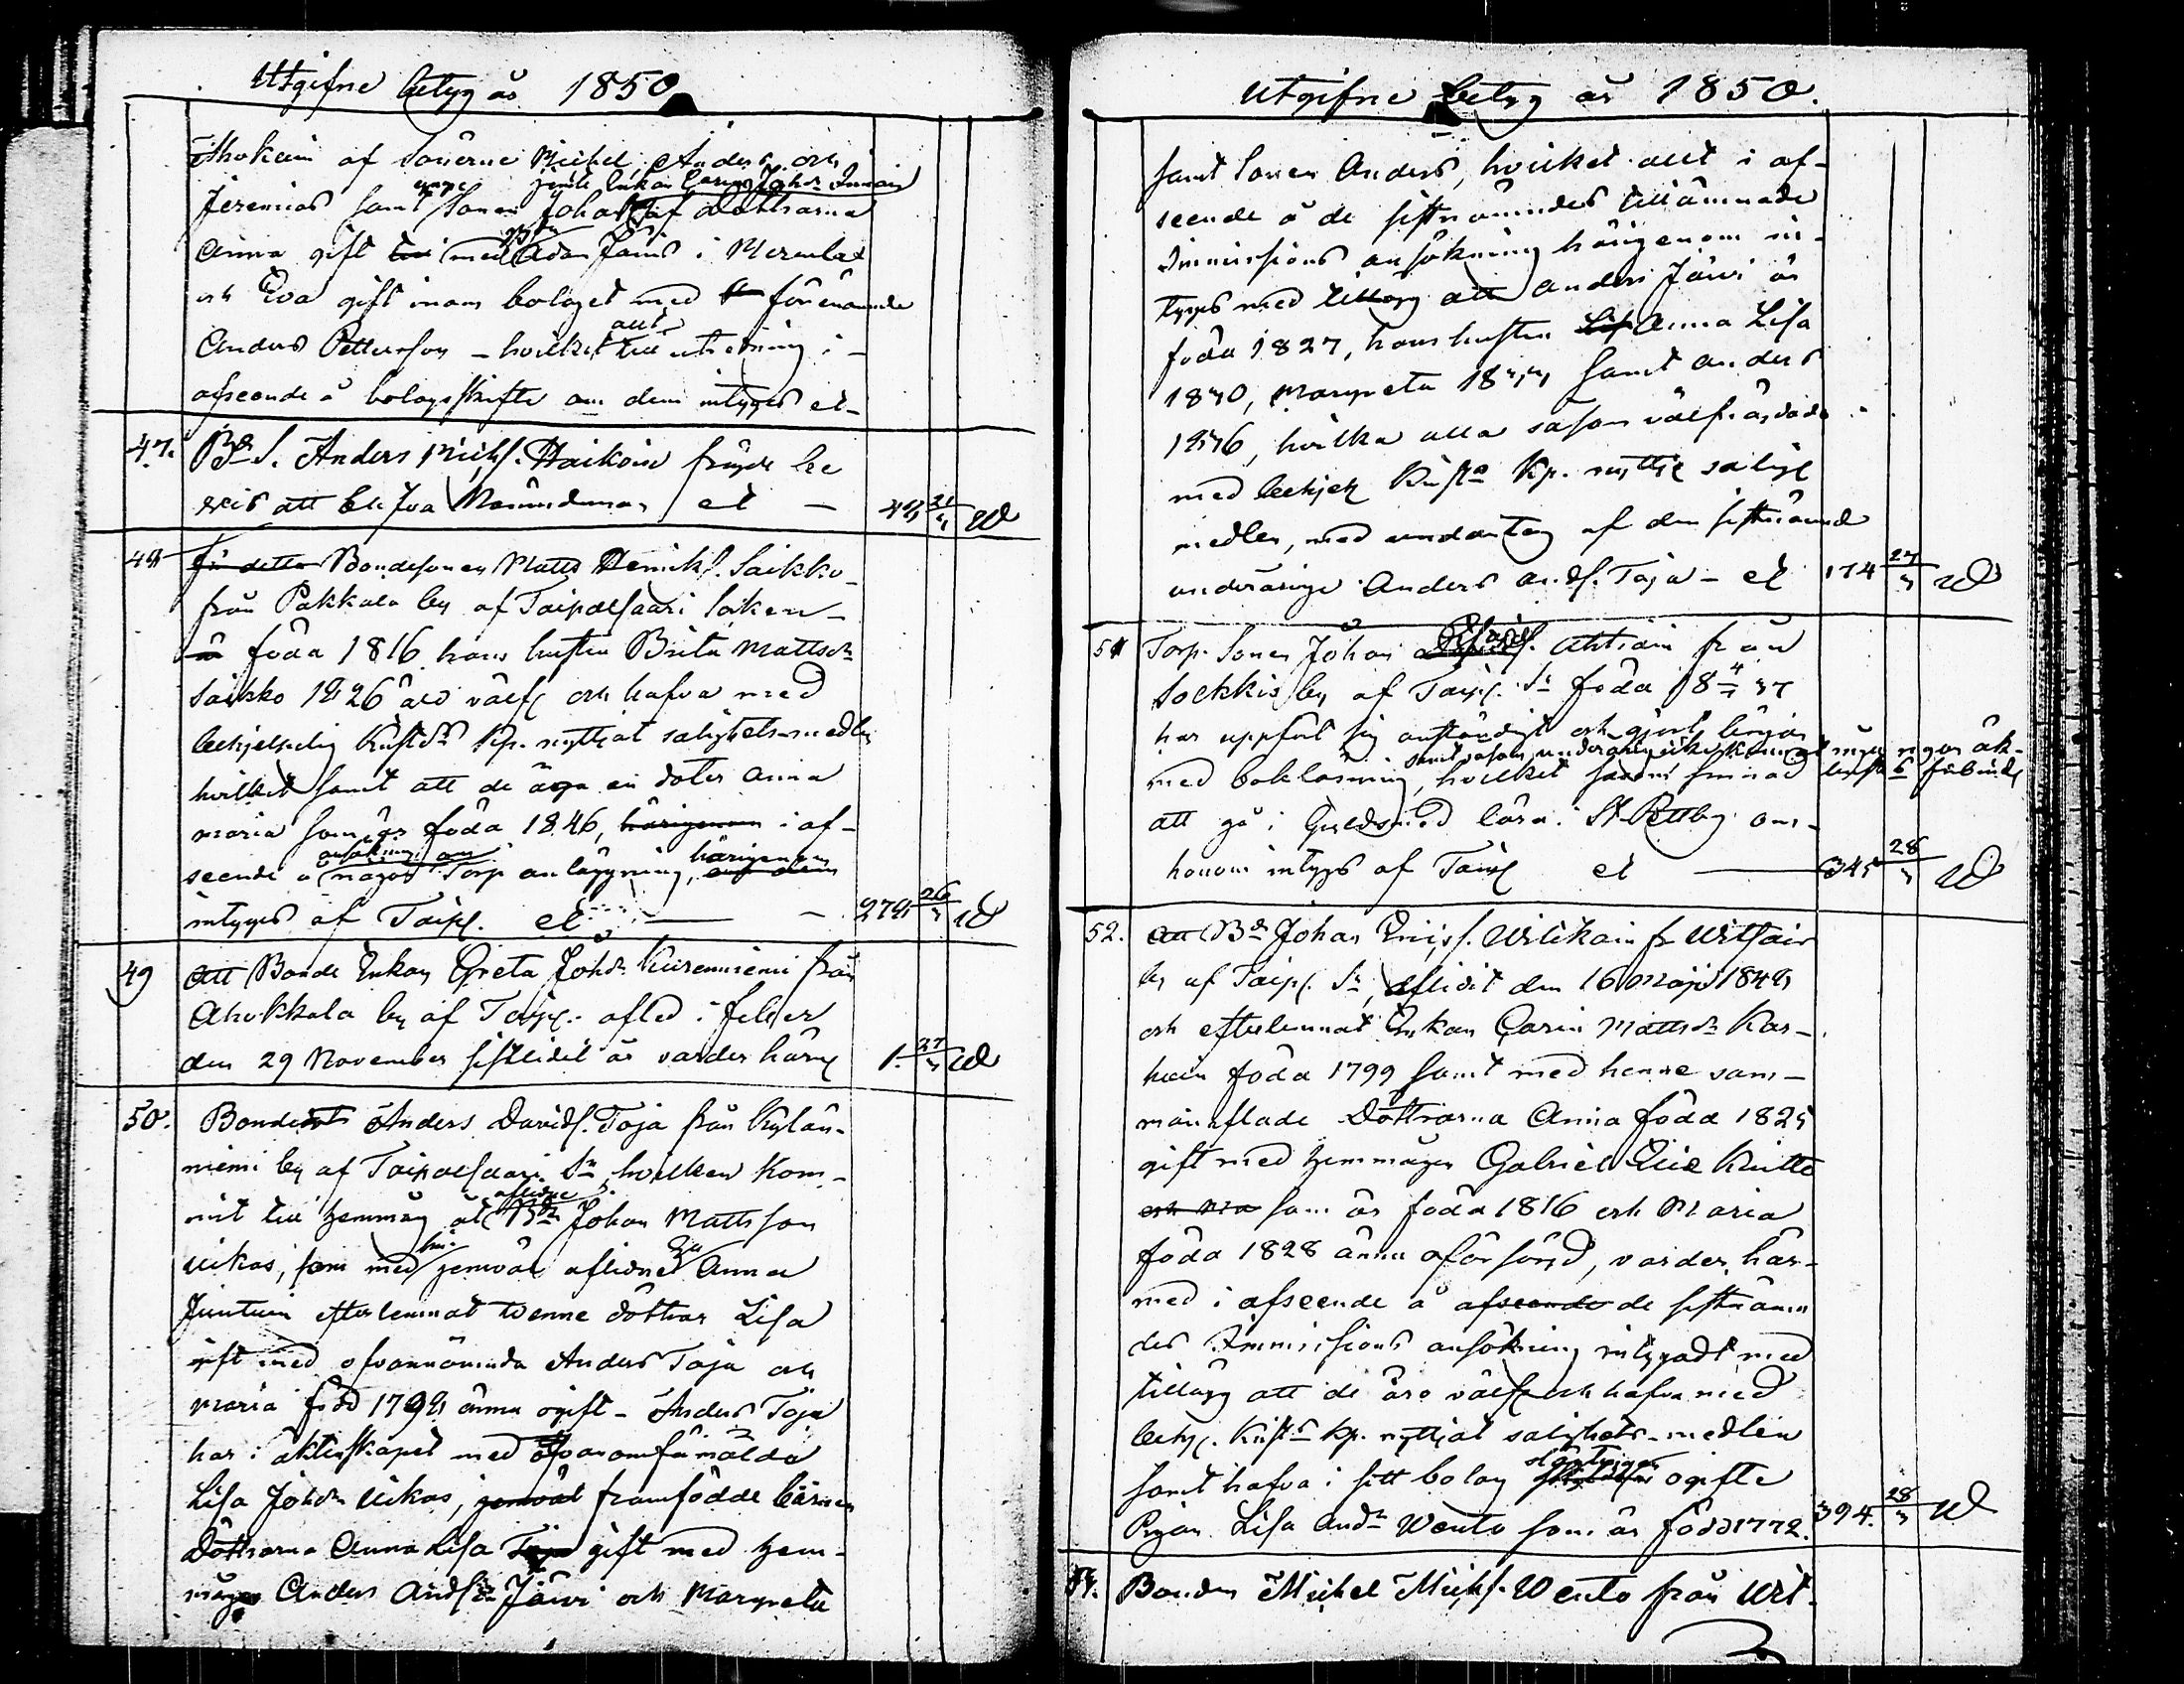 Utgifne betyg år 1850
Ihokain af Sönerne Michel, Anders och
enke jemte Enkan Carin Johsdr Immain
Jeremias samt Sonen Johan af döttrarna
Anna gift med Adam Jams i
och Eva gift inom bolaget med förenämnde
Anders Pettersson – hvilket allt till utredning i
afseende å bolagsskifte om dem intygas et–
47. Bd S. Anders Michs. Haikoin frejde be
vis att blifva Nämndeman et – 44 21/4 W
48 För detta Bondesonen Matts Henriks. Saikko
från Pakkala by af Taipalsaari Socken
född 1816 hans hustru Brita Mattsdr
Saikko 1826 äro välfr och hafva med
behjelpelig Kristds Kp. nyttjat salighets-medlen
hvilket samt att de äga en doter Anna
Maria som är född 1846, härigenom i af–
seende å ansökning om någon Torp anläggning, härigenom
intygas af Taipl. et – 278 26/4 W
49 Att Bonde Enkan Greta Johsdr Kiiremiemi från
Ahokkala by af Taipl. afled i feber
den 29 November sistlidit år varder härmed 1. 27/4 W
50. Bonden Anders Davids. Toja från Kylän–
niemi by af Taipalsaari Sn, hvilken kom–
mit till hemmåg åt aflidne Bdn Johan Mattsson
Uikas, som med sin jemväl aflidne Hu Anna
Juntuin efterlemnat tvenne döttrar Lisa
gift med ofvannämnda Anders Toja och
Maria född 1798 ännu ogift – Anders Toja
har i äktenskapet med ofvanomförmälda
Lisa Johsdr Uikas, jemväl framfödde barnen
Döttrarna Anna Lisa Toja gift med hem–
mågen Anders Andss Järvi och Margreta
Utgifne betyg år 1850.
samt Sonen Anders, hvilket allt i af–
seende å de sistnämndes tillämnade
Immissions ansökning härigenom in–
tygas med tillägg att Anders Järvi är
född 1827, hans hustru Lis Anna Lisa
1830, Margreta 1844 samt Anders
1846, hvilka alla såsom välfräjdade
med behjelp Krista Kp. nyttje salige
medlen, med undantag af den sistnämnd
underårige Anders Ands. Toja – et 174 27/4 W
51 Torp. Sonen Johan Ahtiain från
Sockkis by af Taipl. Sn född 18 4/7 37
har uppfört sig anständigt och gjort början
samt såsom underårig icke kommit ingå någon äk–
med bokläsning, hvilket såsom sinnad tenskaps förbindelse
att gå i Guldsmed lära i St. Pettbg om–
honom intygs af Taipl et – 345 28/4 W
52. Att Bdn Johan Erics. Wilikain fr Uitsain
by af Taipl. Sn, aflidit den 16 Maji 1848
och efterlemnat Enkan Carin Mattsdr Kar–
huin född 1799 samt med henne sam–
manaflade Döttrarna Anna född 1825
gift med hemmågen Gabriel Kuitto
och Ma som är född 1816 och Maria
född 1828 ännu oförsörjd, varder här–
med i afseende å afseende de sistnämn
des Immissions ansökning intygadt, med
tillägg att de äro välfr och hafva med
behjl. Krists Kp. nyttjat salighets-medlen
samt hafva i sitt bolag ogifte
Pigan Lisa Andsdr Wento som är född 1772. 394. 28/4 W
54. Bonden Michel Michs. Wento från Uit–